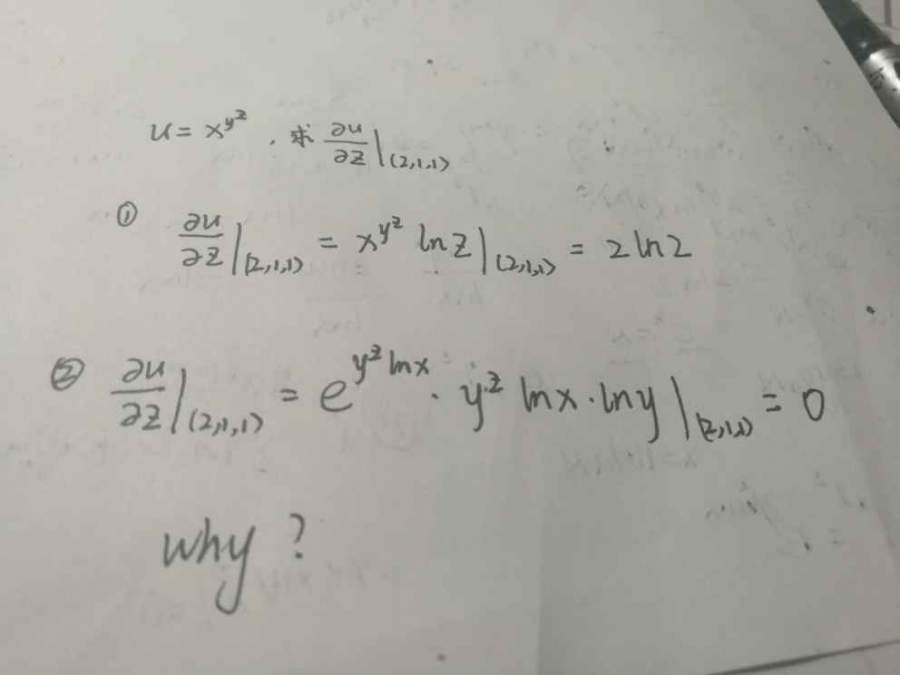 u = x^{y^z} , 求 ∂u/∂z |(2,1,1)
① ∂u/∂z |(2,1,1) = x^{y^z} ln z |(2,1,1) = 2 ln 2
② ∂u/∂z |(2,1,1) = e^{y^z ln x} · y^z ln x · ln y |(2,1,1) = 0
why ?